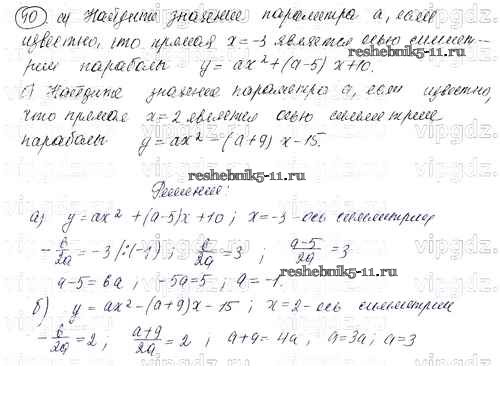 40 а) Найдите значение параметра а, если
известно, что прямая x = -3 является осью симмет-
рии параболы y = ax² + (a-5)x + 10.
б) Найдите значение параметра а, если известно,
что прямая x = 2 является осью симметрии
параболы y = ax² - (a+9)x - 15.
reshebnik5-11.ru
Решение:
а) y = ax² + (a-5)x + 10; x = -3 - ось симметрии
-b/2a = -3 /:(-1); b/2a = 3; (a-5)/2a = 3
a-5 = 6a; -5a = 5; a = -1.
б) y = ax² - (a+9)x - 15; x = 2 - ось симметрии
-b/2a = 2; (a+9)/2a = 2; a+9 = 4a; a = 3a; a = 3
reshebnik5-11.ru